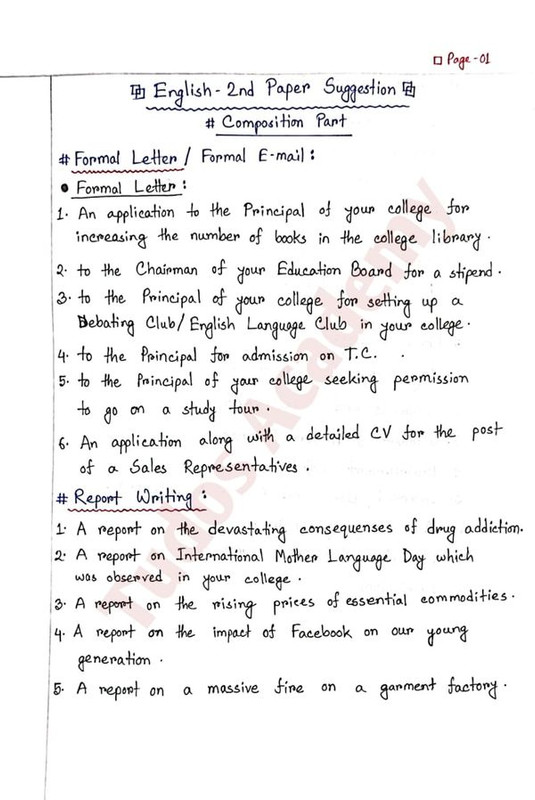 □ Page-01
English - 2nd Paper Suggestion
# Composition Part
# Formal Letter / Formal E-mail :
● Formal Letter :
1. An application to the Principal of your college for
increasing the number of books in the college library.
2. to the Chairman of your Education Board for a stipend.
3. to the Principal of your college for setting up a
Debating Club/English Language Club in your college.
4. to the Principal for admission on T.C. .
5. to the Principal of your college seeking permission
to go on a study tour.
6. An application along with a detailed CV for the post
of a Sales Representatives.
# Report Writing :
1. A report on the devastating consequenses of drug addiction.
2. A report on International Mother Language Day which
was observed in your college.
3. A report on the rising prices of essential commodities.
4. A report on the impact of Facebook on our young
generation.
5. A report on a massive fire on a garment factory.
Tudos Academy